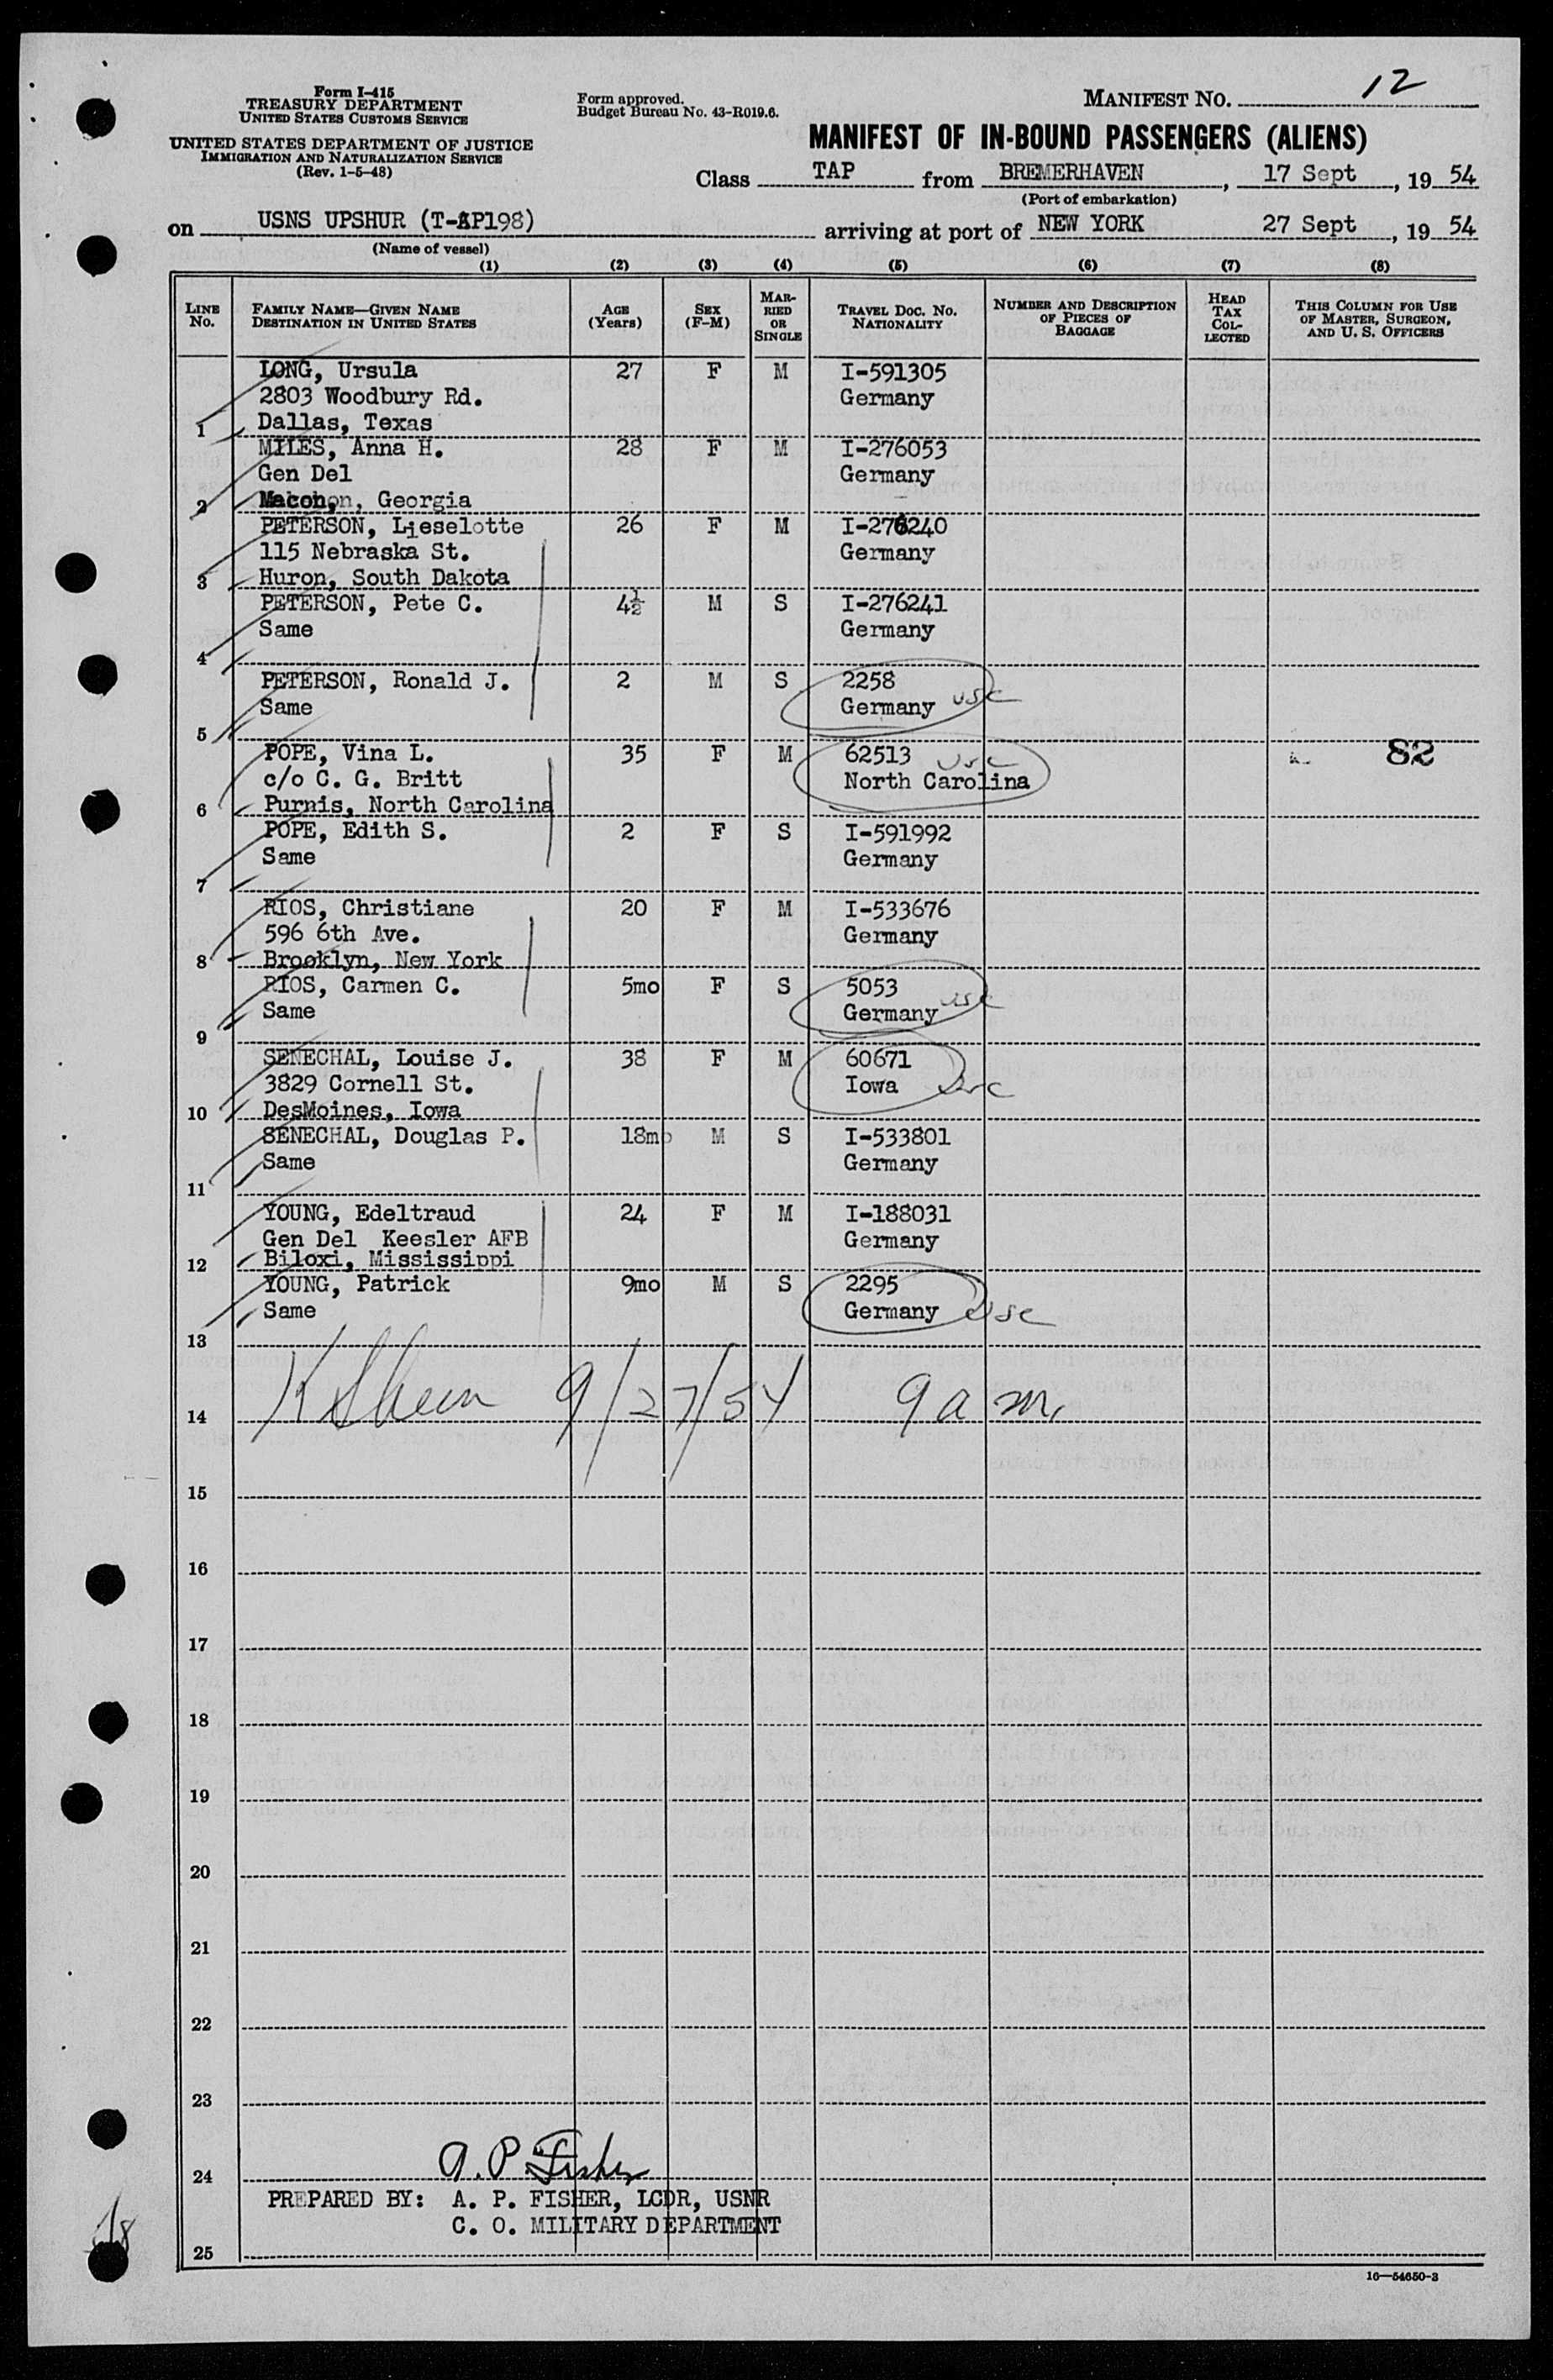 Form I-415
TREASURY DEPARTMENT
UNITED STATES CUSTOMS SERVICE
UNITED STATES DEPARTMENT OF JUSTICE
IMMIGRATION AND NATURALIZATION SERVICE
(Rev. 1-5-48)
Form approved.
Budget Bureau No. 43-R019.6.
MANIFEST NO. 12
MANIFEST OF IN-BOUND PASSENGERS (ALIENS)
Class TAP from BREMERHAVEN, 17 Sept, 19 54
(Port of embarkation)
on USNS UPSHUR (T-AP198) arriving at port of NEW YORK 27 Sept, 19 54
(Name of vessel)
(1) (2) (3) (4) (5) (6) (7) (8)
LINE NO. FAMILY NAME—GIVEN NAME DESTINATION IN UNITED STATES AGE (Years) SEX (F-M) MARRIED OR SINGLE TRAVEL DOC. NO. NATIONALITY NUMBER AND DESCRIPTION OF PIECES OF BAGGAGE HEAD TAX COLLECTED THIS COLUMN FOR USE OF MASTER, SURGEON, AND U. S. OFFICERS
LONG, Ursula 27 F M I-591305
2803 Woodbury Rd. Germany
1 Dallas, Texas
MILES, Anna H. 28 F M I-276053
Gen Del Germany
2 Macon, Georgia
PETERSON, Lieselotte 26 F M I-276240
115 Nebraska St. Germany
3 Huron, South Dakota
PETERSON, Pete C. 4½ M S I-276241
Same Germany
4
PETERSON, Ronald J. 2 M S 2258
Same Germany usc
5
POPE, Vina L. 35 F M 62513 usc 82
c/o C. G. Britt North Carolina
6 Purnis, North Carolina
POPE, Edith S. 2 F S I-591992
Same Germany
7
RIOS, Christiane 20 F M I-533676
596 6th Ave. Germany
8 Brooklyn, New York
RIOS, Carmen C. 5mo F S 5053
Same Germany usc
9
SENECHAL, Louise J. 38 F M 60671
3829 Cornell St. Iowa usc
10 DesMoines, Iowa
SENECHAL, Douglas P. 18mo M S I-533801
Same Germany
11
YOUNG, Edeltraud 24 F M I-188031
Gen Del Keesler AFB Germany
12 Biloxi, Mississippi
YOUNG, Patrick 9mo M S 2295
Same Germany usc
13
14 9/27/54 9 a m.
15
16
17
18
19
20
21
22
23
24 A. P. Fisher
PREPARED BY: A. P. FISHER, LCDR, USNR
C. O. MILITARY DEPARTMENT
25
16—54650-3